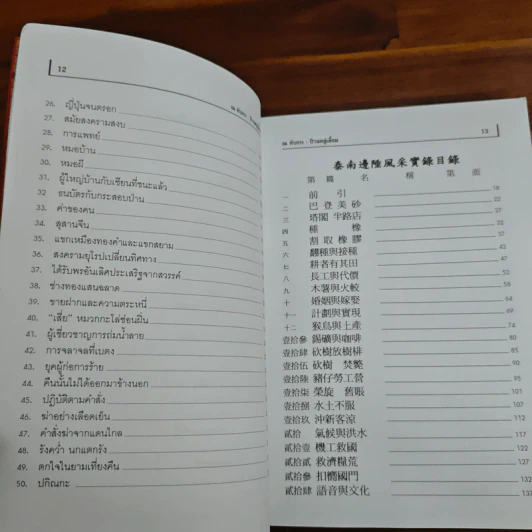 12
ณ หัวเกาะ : บ้านหมู่เพื่อน
26. ญี่ปุ่นจนตรอก
27. สมัยสงครามสงบ
28. การแพทย์
29. หมอบ้าน
30. หมอผี
31. ผู้ใหญ่บ้านกับเซียนที่ชนะแล้ว
32. ธนบัตรกับกระสอบป่าน
33. ค่าของคน
34. สุสานจีน
35. แขกเหมืองทองคำและแขกสยาม
36. สงครามยุโรปเปลี่ยนทิศทาง
37. ได้รับพรอันเลิศประเสริฐจากสวรรค์
38. ช่างทองแสนฉลาด
39. ขายฝากและความตระหนี่
40. "เสี่ย" หมวกกะโล่ซ่อนฝิ่น
41. ผู้เชี่ยวชาญการถ่มน้ำลาย
42. การจลาจลที่เบตง
43. ยุคผู้ก่อการร้าย
44. คืนนั้นไม่ได้ออกมาข้างนอก
45. ปฏิบัติตามคำสั่ง
46. ฆ่าอย่างเลือดเย็น
47. คำสั่งฆ่าจากแดนไกล
48. รังคว่ำ นกแตกรัง
49. ตกใจในยามเที่ยงคืน
50. ปกิณกะ
13
泰南邊陸風采實錄目錄
第 篇 名 稱 第 面
一 前 引 18
二 巴登美砂 22
三 塔閣 半路店 27
四 種 橡 32
五 割取橡膠 37
六 翻種與接種 43
七 耕者有其田 47
八 長工與代價 52
九 木薯與火較 57
十 婚姻與嫁娶 62
十一 計劃與實現 67
十二 猴鳥與土產 74
壹拾參 錫礦與咖啡 80
壹拾肆 砍樹放樹棑 85
壹拾伍 砍樹 焚甃 90
壹拾陸 豬仔勞工營 95
壹拾柒 榮旋 舊賬 100
壹拾捌 水土不服 105
壹拾玖 沖新客涼 112
貳拾 氣候與洪水 117
貳拾壹 機工救國 122
貳拾貳 救濟糧荒 127
貳拾參 國門 132
貳拾肆 語音與文化 137